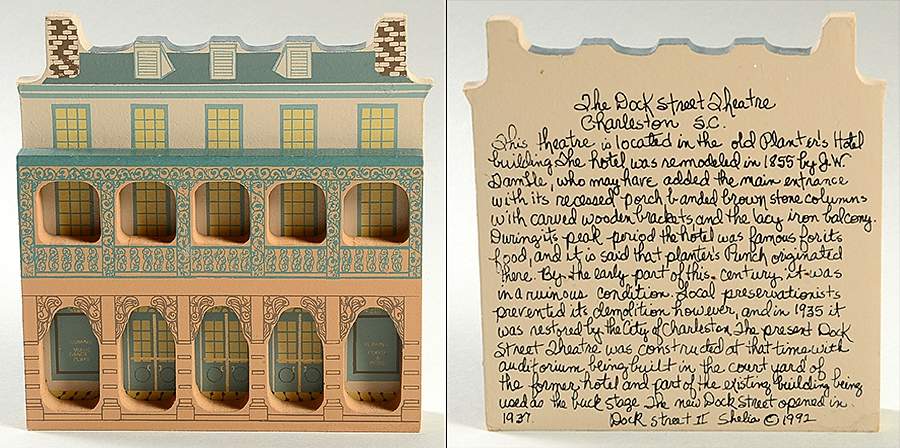 The Dock Street Theatre
Charleston S.C.
This theatre is located in the old Planter's Hotel
building. The hotel was remodeled in 1855 by J.W.
Gamble, who may have added the main entrance
with its recessed porch banded brown stone columns
with carved wooden brackets and the lacy iron balcony.
During its peak period the hotel was famous for its
food, and it is said that planter's Punch originated
there. By the early part of this century it was
in a ruinous condition. Local preservationists
prevented its demolition however, and in 1935 it
was restored by the City of Charleston. The present Dock
Street Theatre was constructed at that time with
auditorium being built in the court yard of
the former hotel and part of the existing building being
used as the buck stage. The new Dock Street opened in
1937.
Dock Street II Shelia © 1992